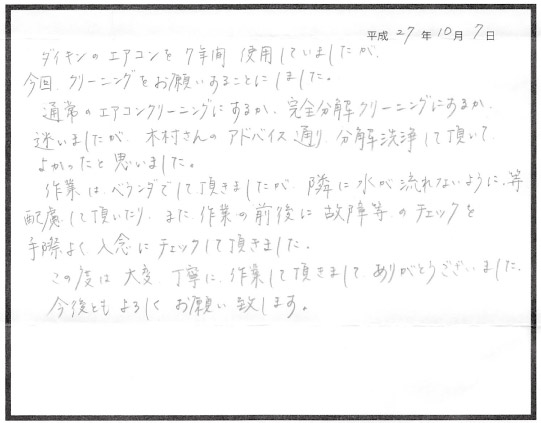 平成27年10月7日
ダイキンのエアコンを7年間使用していましたが、
今回、クリーニングをお願いすることにしました。
通常のエアコンクリーニングにするか、完全分解クリーニングにするか、
迷いましたが、木村さんのアドバイス通り、分解洗浄して頂いて、
よかったと思いました。
作業は、ベランダでして頂きましたが、隣に水が流れないように、等
配慮して頂いたり、また、作業の前後に故障等のチェックを
手際よく入念にチェックして頂きました。
この度は大変丁寧に、作業して頂きまして、ありがとうございました。
今後ともよろしくお願い致します。